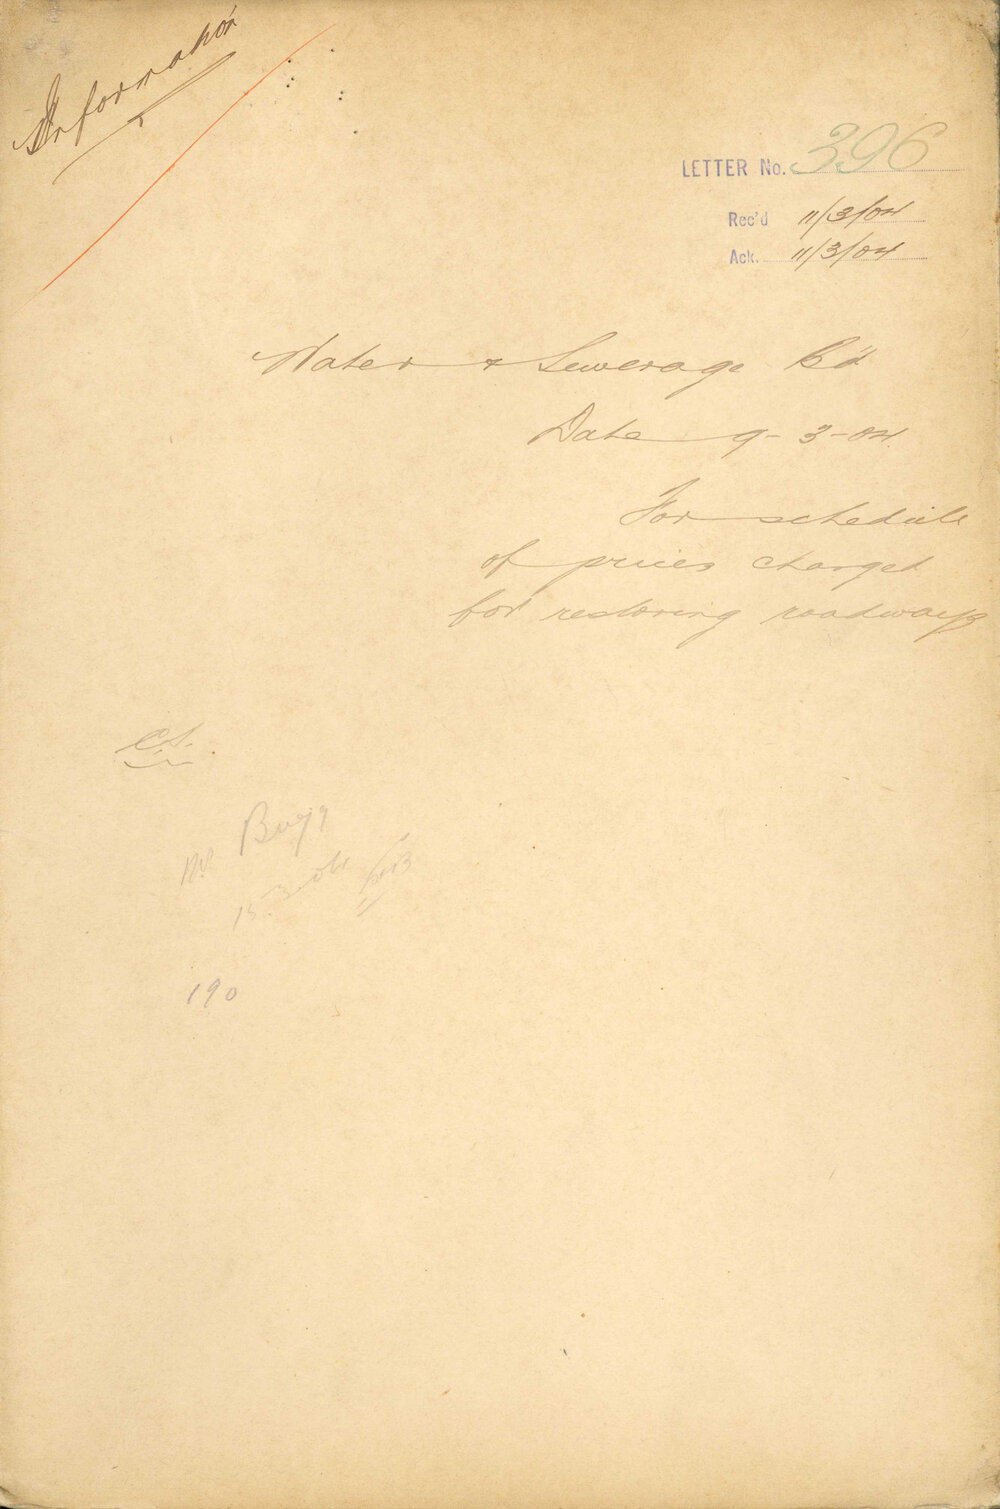 Information
LETTER No. 396
Rec'd 11/3/04
Ack. 11/3/04
Water & Sewerage Bd
Date 9-3-04.
For schedule
of prices charged
for restoring roadways
C.S.
Mr Bugg
15.3.04
190